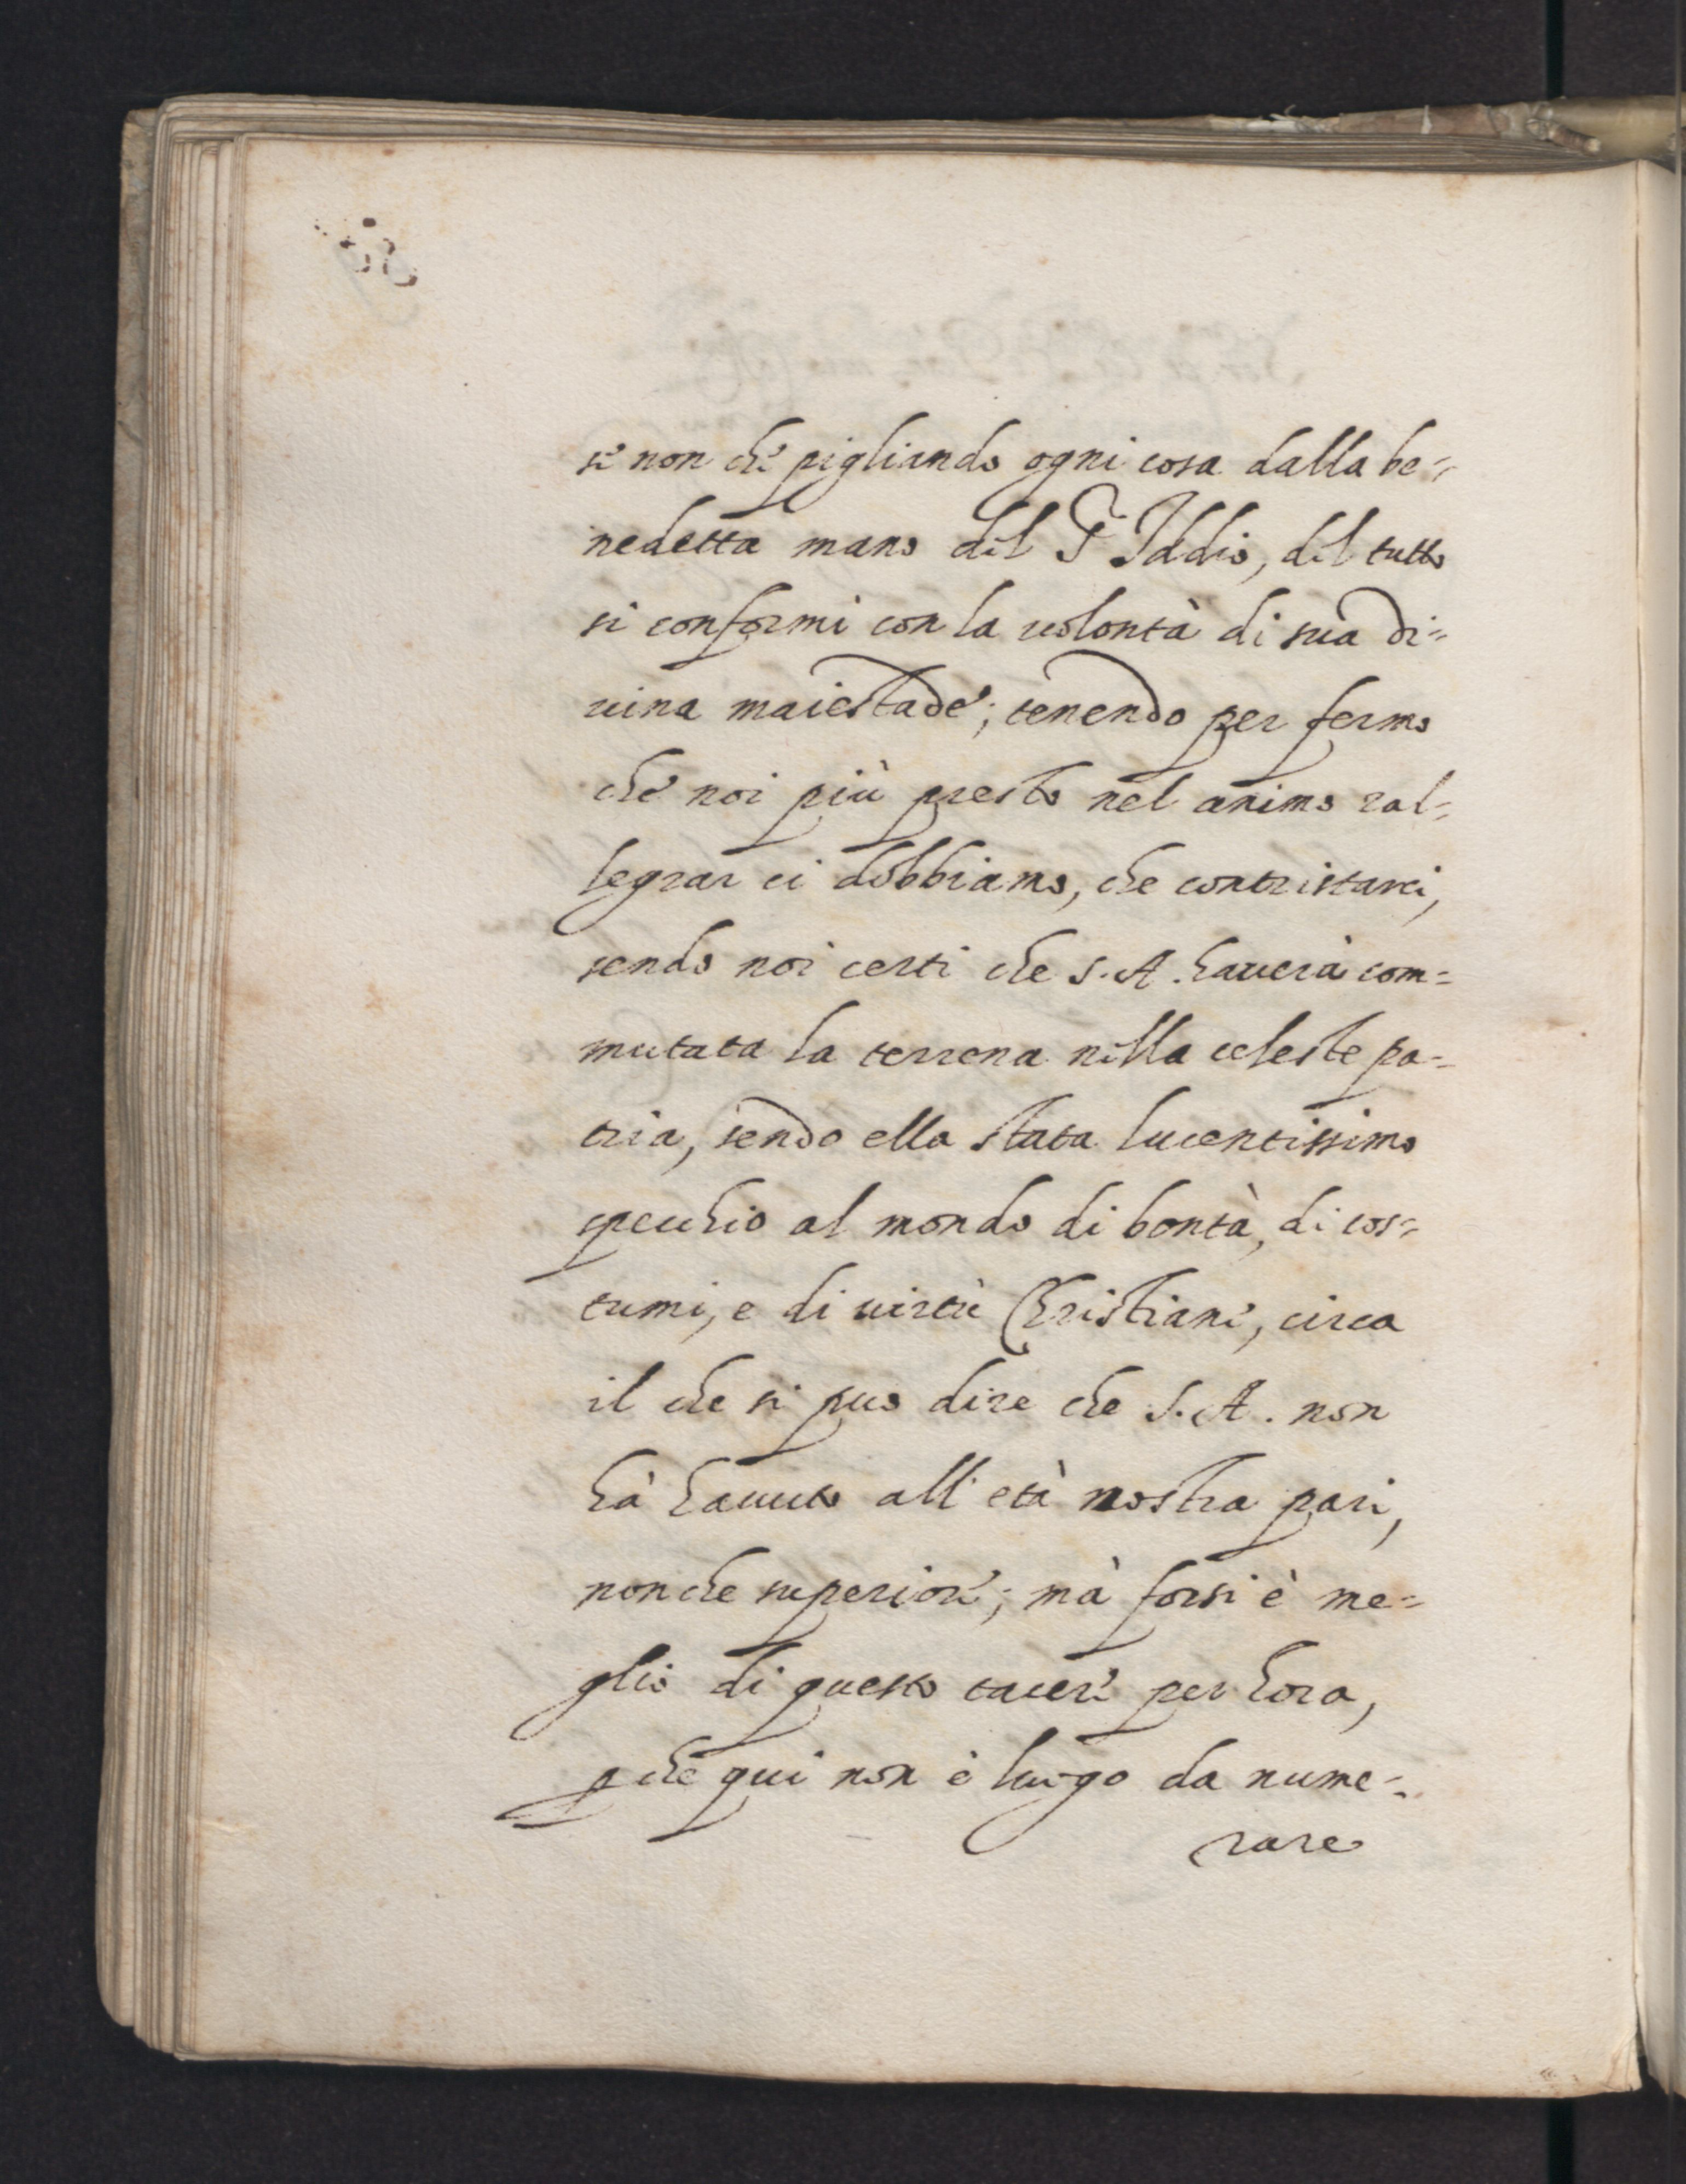 se non che pigliando ogni cosa dalla be=
nedetta mano del S. Iddio, del tutto
si conformi con la uolontà di sua di=
uina maiestade; tenendo per fermo
che noi più presto nel animo ral=
legrar ci dobbiamo, che contristarci,
sendo noi certi che S. A. hauerà com=
mutata la terrena nella celeste pa=
tria, sendo ella stata lucentissimo
specchio al mondo di bontà, di cos=
tumi, e di uirtù Christiane, circa
il che si puo dire che S. A. non
hà hauuto all'età nostra pari,
non che superiore; mà forsi è me=
glio di questo tacere per hora,
p che qui non è luogo da nume=
rare